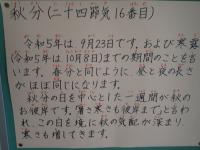 秋分(二十四節気16番目)
令和5年は9月23日です。および寒露
(令和5年は10月8日)までの期間のことを言
います。春分と同じように昼と夜の長さ
がほぼ同じになります。
秋分の日を中心とした一週間が秋の
お彼岸です。「暑さ寒さも彼岸まで」と言わ
れ、この日を境に秋の気配が深まり、
寒さも増してきます。